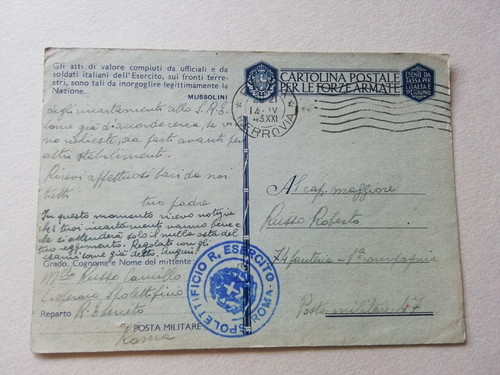 Gli atti di valore compiuti da ufficiali e da
soldati italiani dell'Esercito, sui fronti terre-
stri, sono tali da inorgoglire legittimamente la
Nazione.
MUSSOLINI
degli incartamenti allo S.R.E.
come già d'accordo cerca, se
richieste, da farti avanti per
altri stabilimenti.
Ricevi affettuosi baci da noi
tutti
tuo padre
In questo momento ricevo notizia
che i tuoi incartamenti vanno bene e
che si attenderà solo il nulla osta del
tuo reggimento. Regolati con gli
già detto. Auguri.
Grado, Cognome e Nome del mittente:
Russo Camillo
Spolettificio
Reparto R. Esercito
POSTA MILITARE
Roma
CARTOLINA POSTALE
PER LE FORZE ARMATE
ESENTE DA
TASSA PER
ITALIA E
21
14·IV
43XXI
FERROVIA
SPOLETTIFICIO R. ESERCITO
ROMA
Al cap. maggiore
Russo Roberto
7ª Fanteria - 1ª compagnia
Posta militare 47